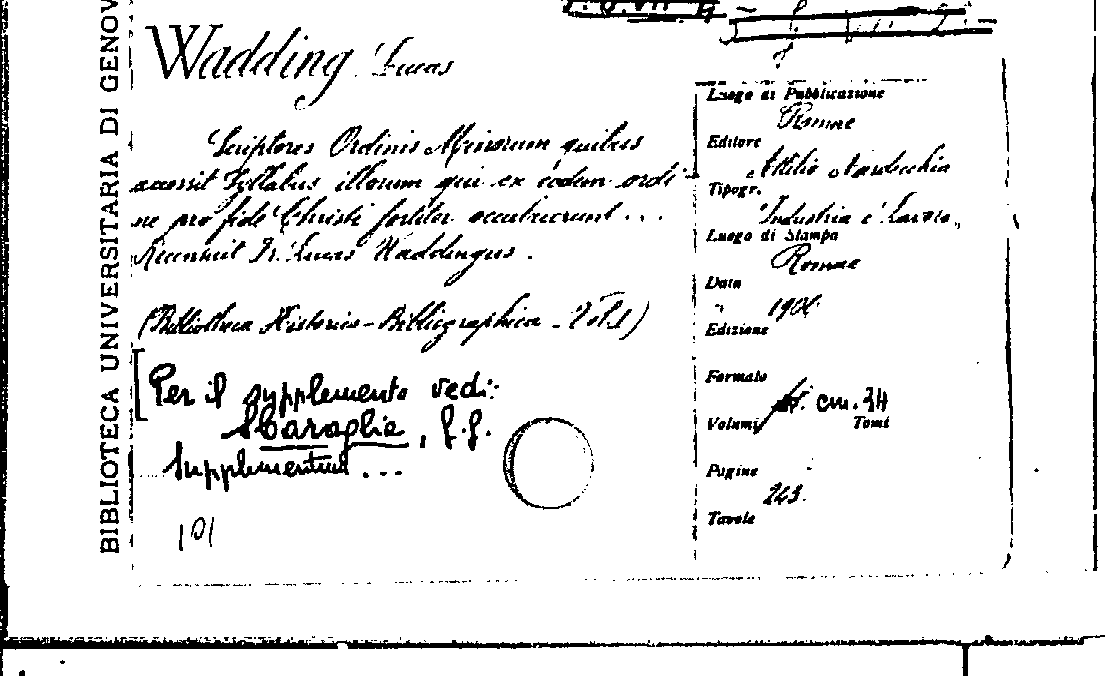 BIBLIOTECA UNIVERSITARIA DI GENOV
Wadding Lucas
Scriptores Ordinis Minorum quibus
accessit Syllabus illorum qui ex eodem ordi-
ne pro fide Christi fortiter occubuerunt ...
Recensuit Fr. Lucas Waddingus.
(Bibliotheca Historico-Bibliographica -
[Per il supplemento vedi:
Sbaraglia, G.G.
Supplementum ...
101
Luogo di Pubblicazione
Romae
Editore
Attilio Nardecchia
Tipogr.
"Industria e Lavoro„
Luogo di Stampa
Romae
Data
1906
Edizione
Formato
cm. 34
Volumi Tomi
Pagine
243.
Tavole